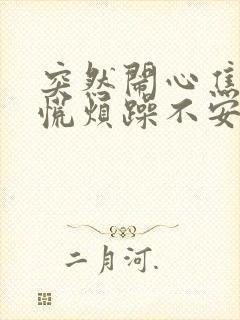 突然闹心焦
慌烦躁不安
二月河.